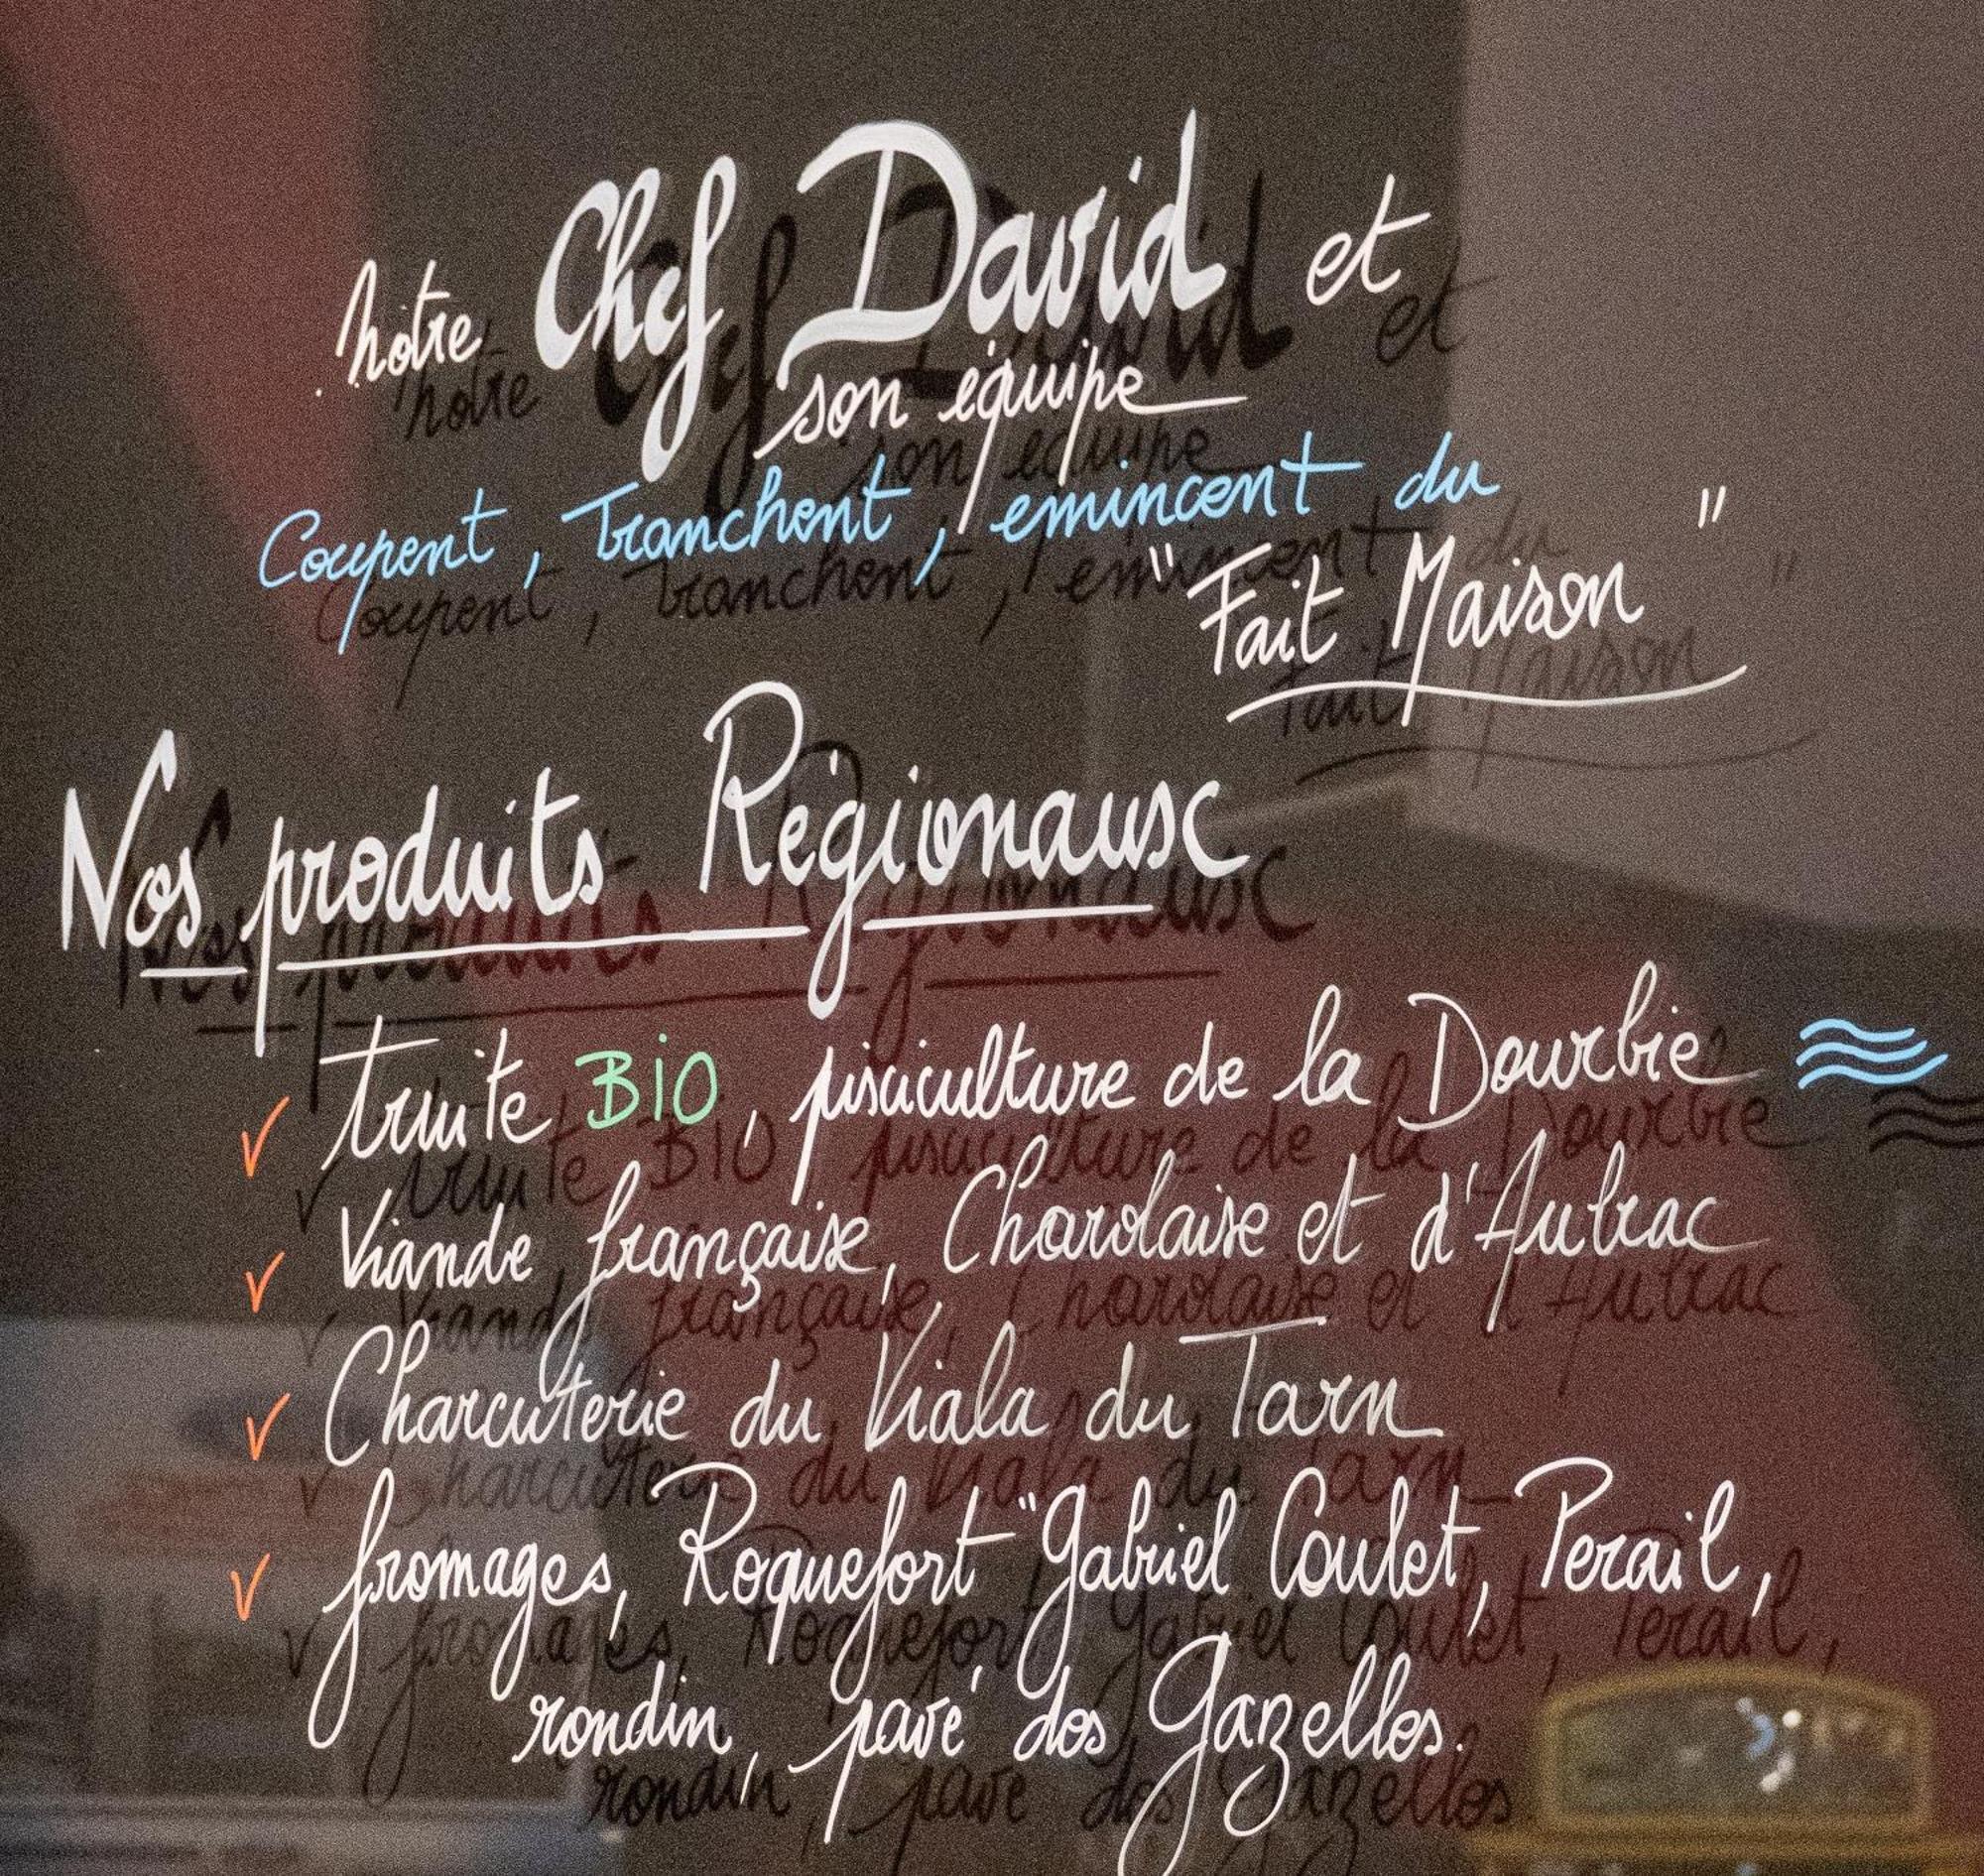 notre Chef David et
son équipe
Coupent, Tranchent, emincent du
"Fait Maison"
Nos produits Régionaux
✓ truite BIO, pisciculture de la Dourbie
✓ Viande française, Charolaise et d'Aubrac
✓ Charcuterie du Viala du Tarn
✓ fromages, Roquefort "Gabriel Coulet, Perail,
rondin, pavé des Gazelles.